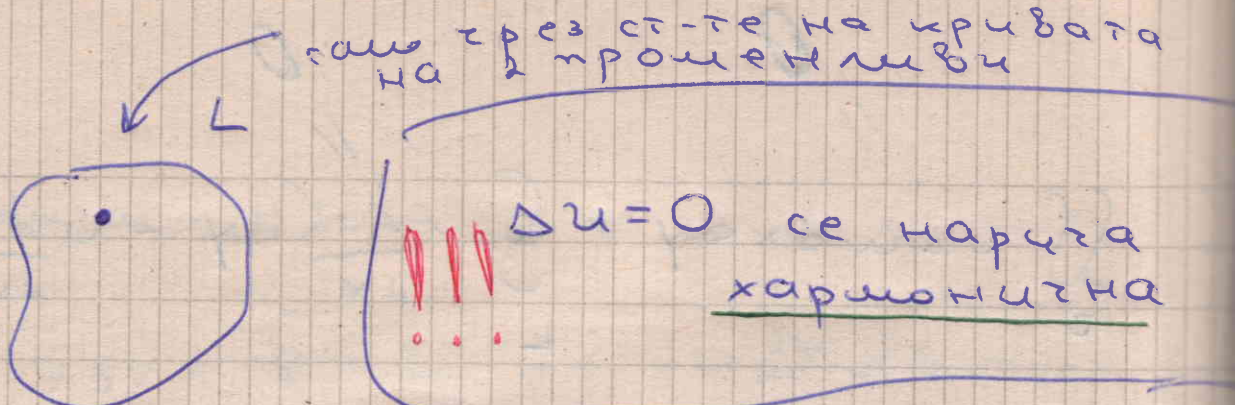 само през ст-те на кривата
на 2 променливи
L
!!! Δu = 0 се нарича
хармонична